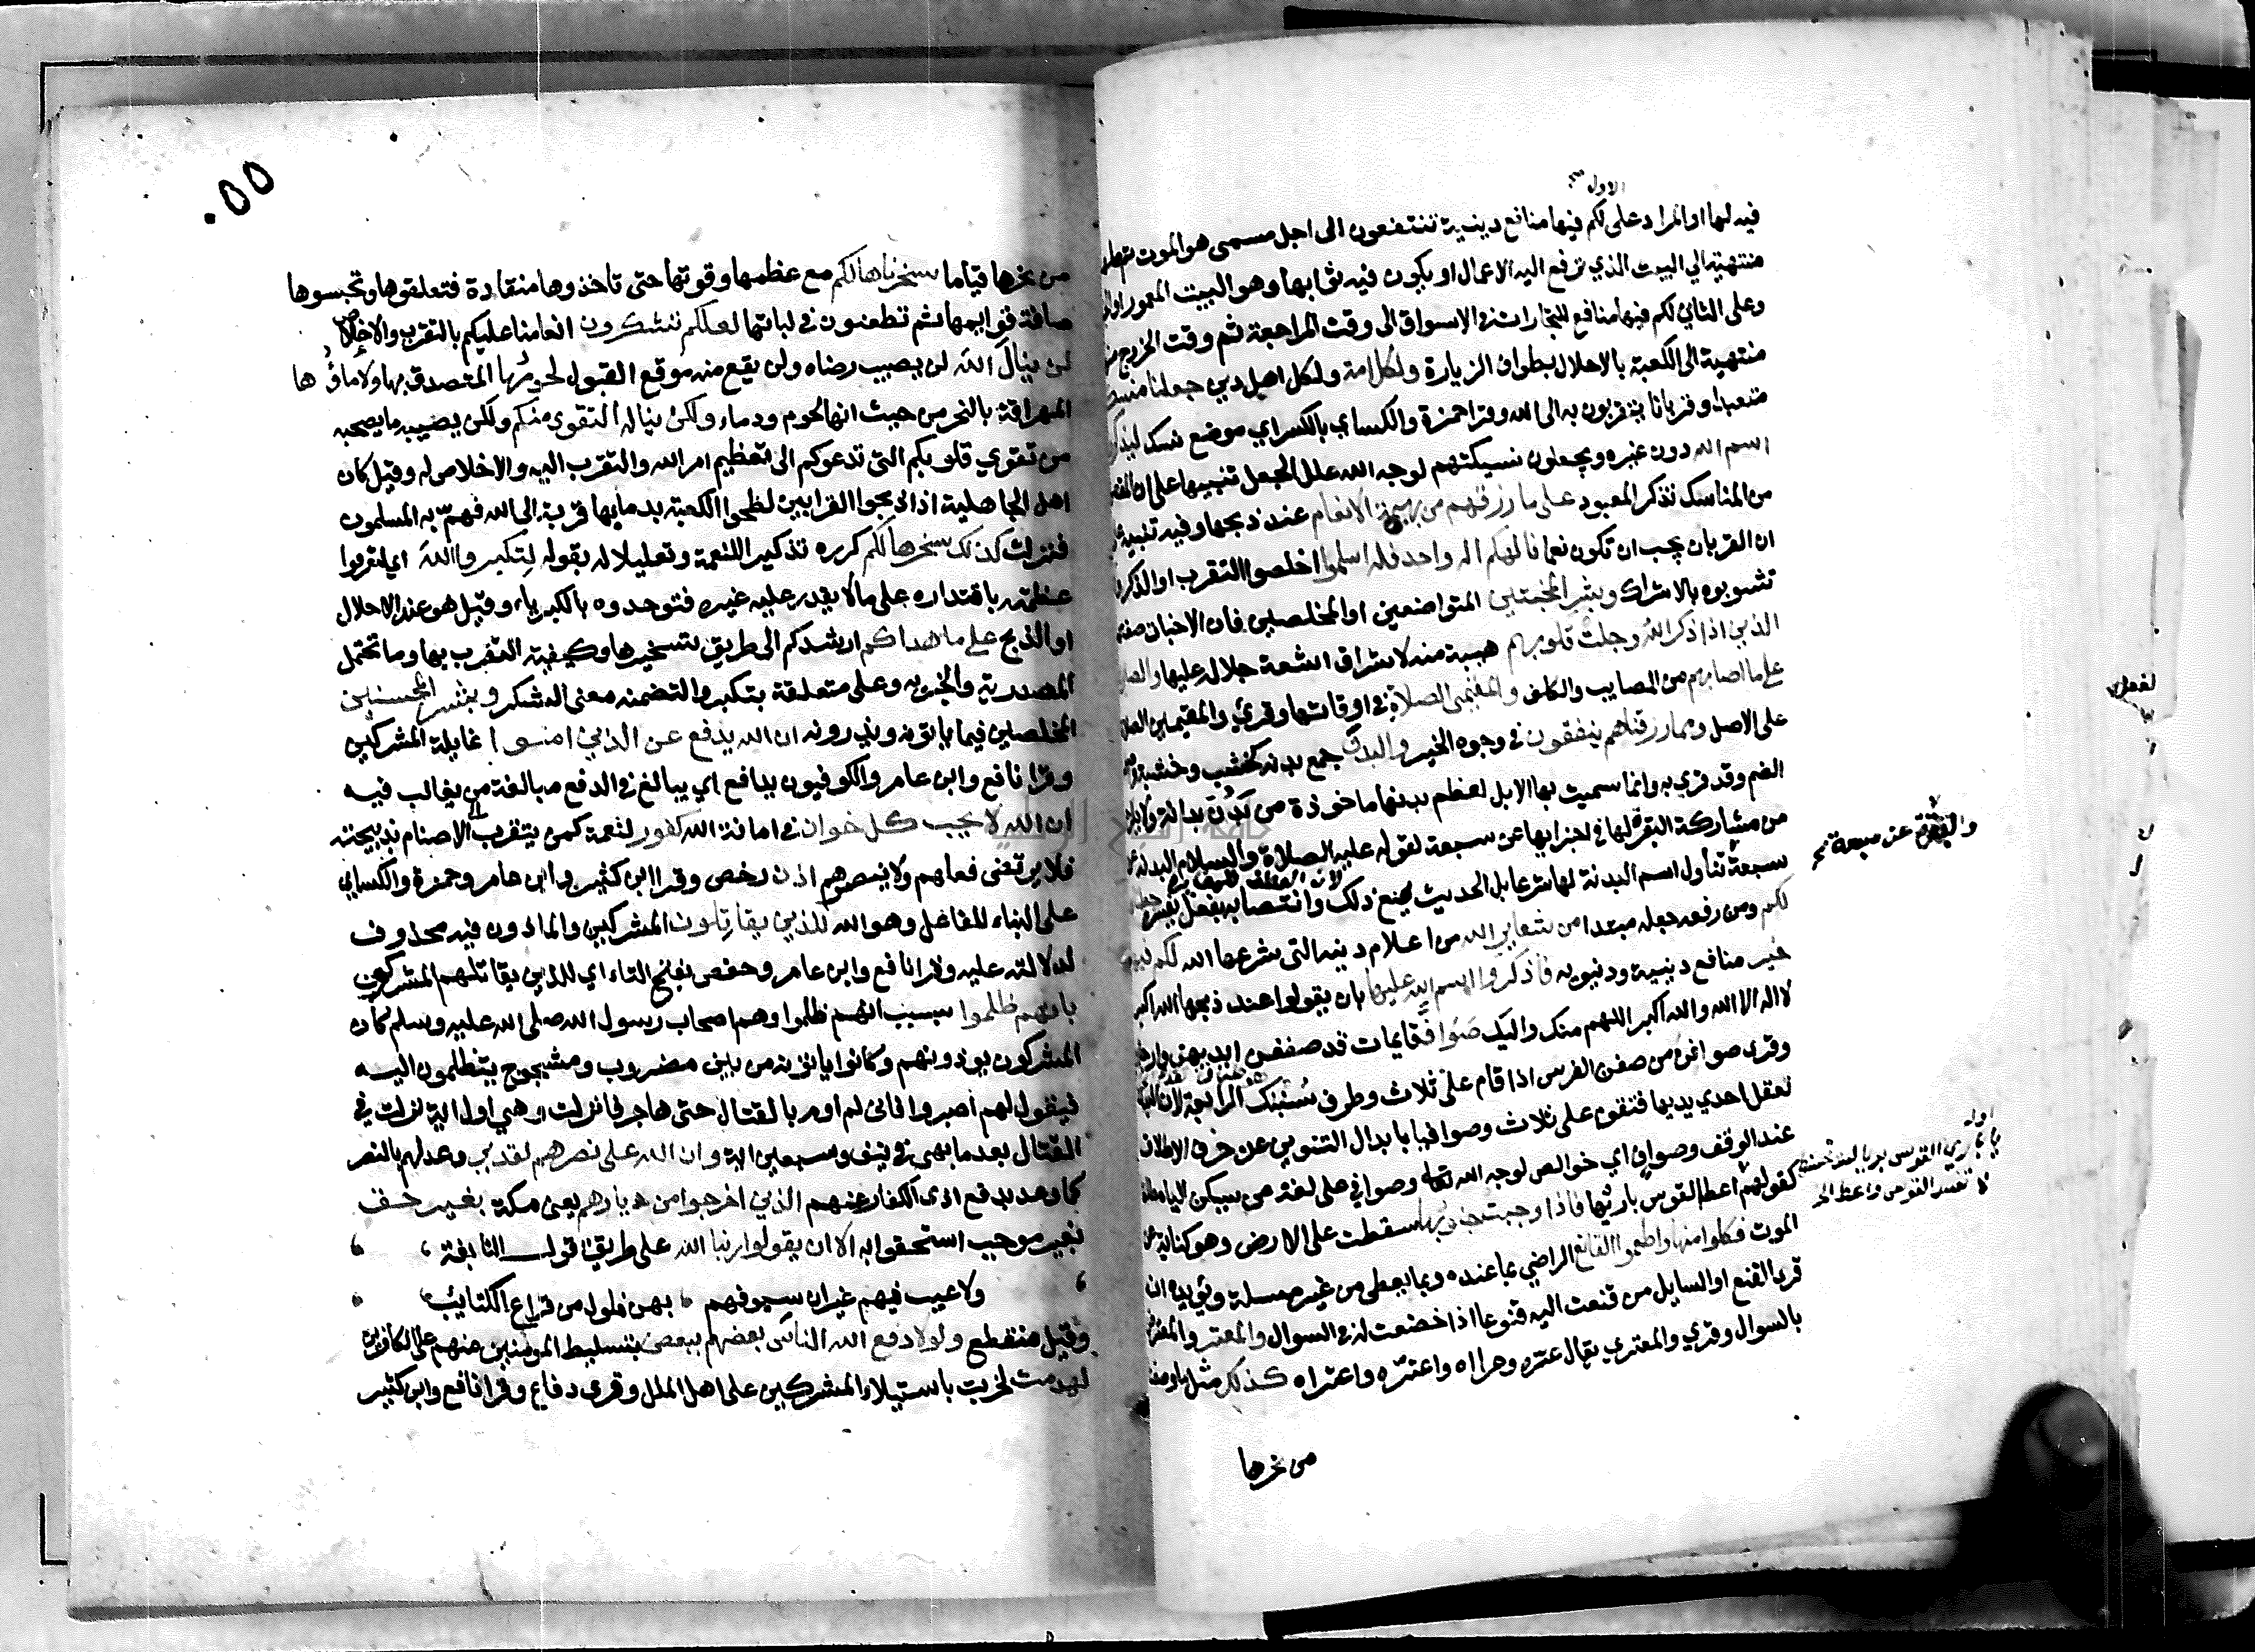 الاول
فيه لها او المراد على لكم فيها منافع دينية تنتفعون الى اجل مسمى هو الموت ثم محلها
منتهية الي البيت الذي ترفع اليه الاعمال او يكون فيه ثوابها وهو البيت المعمور او
وعلى الثاني لكم فيها منافع للتجارات في الاسواق الى وقت المراجعة ثم وقت الخروج منها
منتهية الى الكعبة بالاحلال بطواف الزيارة ولكل امة ولكل اهل دين جعلنا منسكا
متعبدا وقربانا يتقربون به الى الله وقرا حمزة والكساي بالكسر اي موضع نسك ليذكروا
اسم الله دون غيره ويجعلون نسيكتهم لوجه الله علل الجعل تنبيها على ان المقصود
من المناسك تذكر المعبود على ما رزقهم من بهيمة الانعام عند ذبحها وفيه تنبيه
ان القربان يجب ان تكون نعما فالهكم اله واحد فله اسلموا اخلصوا التقرب او الذكر
تشوبوه بالاشراك وبشر المخبتين المتواضعين او المخلصين فان الاخبات صفتهم
الذين اذا ذكر الله وجلت قلوبهم هيبة منه لاشراق اشعة جلاله عليها والصابرين
على ما اصابهم من المصايب والكلف والمقيمي الصلاة في اوقاتها وقري والمقيمين الصلاة
على الاصل ومما رزقناهم ينفقون في وجوه الخير والبدن جمع بدنه كخشب وخشبة
الضم وقد قري به وانما سميت بها الابل لعظم بدنها ماخوذة من بَدُنَ بدانة ولا يلزم
من مشاركة البقرة لها في اجزايها عن سبعة لقوله عليه الصلاة والسلام البدنة عن
والبقرة عن سبعة
سبعة تناول اسم البدنة لها شرعا بل الحديث يمنع ذلك وانتصابه بفعل يفسره
لكم ومن رفعه جعله مبتدا من شعاير الله من اعلام دينه التي شرعها الله لكم فيها
خير منافع دينية ودنيويه فاذكروا اسم الله عليها بان يقولوا عند ذبحها الله اكبر
لا اله الا الله والله اكبر اللهم منك واليك صواف قايمات قد صففن ايديهن وارجلهن
وقرى صوافن من صفن الفرس اذا قام على ثلاث وطرف سُنبك الرابعة لان البدنة
تعقل احدي يديها فتقوم على ثلاث وصوافيا بابدال التنوين عن حرف الاطلاق
عند الوقف وصوافي اي خوالص لوجه الله تعالى وصوافي على لغة من يسكن الياء مطلقا
كقولهم اعط القوس باريها فاذا وجبت جنوبها سقطت على الارض وهو كناية عن
اوله
يا باري القوس بريا لست تحسنه
لا تفسد القوس واعط
الموت فكلوا منها واطعموا القانع الراضي بما عنده وبما يعطى من غير مسلة ويؤيده ان
قرى القنع او السايل من قنعت اليه قنوعا اذا خضعت له في السوال والمعتر والمعترض
بالسوال وقري والمعتري يقال عتره وعراه واعترّه واعتراه كذلك مثل ما وصفنا
من نحرها
٥٥٠
من نحرها قياما سخرناها لكم مع عظمها وقوتها حتى تاخذوها منقادة فتعلقوها وتحبسوها
صافة قوايمها ثم تطعنون في لباتها لعلكم تشكرون انعامنا عليكم بالتقرب والاخلاص
لن ينالَ اللّهَ لن يصيب رضاه ولن يقع منه موقع القبول لحومُها المتصدق بها ولا دماؤُها
المهراقة بالنحر من حيث انها لحوم ودماء ولكن يناله التقوى منكم ولكن يصيبه ما يصحبه
من تقوي قلوبكم التي تدعوكم الى تعظيم امر الله والتقرب اليه والاخلاص له وقيل كان
اهل الجاهلية اذا ذبحوا القرابين لطخوا الكعبة بدمايها قربة الى الله فهمّ به المسلمون
فنزلت كذلك سخرها لكم كرره تذكيرا للنعمة وتعليلا له بقوله لِتكبروا اللهَ اي لتعرفوا
عظمته باقتداره على ما لا يقدر عليه غيره فتوحدوه بالكبرياء وقيل هو عند الاحلال
او الذبح على ما هداكم ارشدكم الى طريق تسخيرها وكيفية التقرب بها وما تحتمل
المصدرية والخبريه وعلى متعلقة بتكبروا لتضمنه معنى الشكر وبشر المحسنين
المخلصين فيما ياتونه ويذرونه ان الله يدفع عن الذين امنوا غايلة المشركين
وقرا نافع وابن عامر والكوفيون يدافع اي يبالغ في الدفع مبالغة من يغالب فيه
ان الله لا يحب كل خوان في امانة الله كفور لنعمة كمن يتقرب الى الاصنام بذبيحته
فلا يرتضى فعلهم ولا ينصرهم اذن رخص وقرا ابن كثير وابن عامر وحمزة والكساي
على البناء للفاعل وهو الله للذين يقاتِلون المشركين والماذون فيه محذوف
لدلالته عليه وقرا نافع وابن عامر وحفص بفتح التاء اي للذين يقاتلهم المشركون
بانهم ظلموا بسبب انهم ظلموا وهم اصحاب رسول الله صلى الله عليه وسلم كان
المشركون يوذونهم وكانوا ياتونه من بين مضروب ومشجوج يتظلمون اليه
فيقول لهم اصبروا فانى لم اومر بالقتال حتى هاجر فانزلت وهي اول اية نزلت في
القتال بعد ما نهى في نيف وسبعين اية وان الله على نصرهم لقدير وعد لهم بالنصر
كما وعد بدفع اذى الكفار عنهم الذين اخرجوا من ديارهم يعنى مكة بغير حق
بغير موجب استحقوا به الا ان يقولوا ربنا الله على طريق قول النابغة
ولا عيب فيهم غير ان سيوفهم بهن فلول من قراع الكتايب
وقيل منقطع ولولا دفع الله الناس بعضهم ببعض بتسليط المومنين منهم على الكافرين
لهدمت لخربت باستيلاء المشركين على اهل الملل وقرى دفاع وقرا نافع وابن كثير